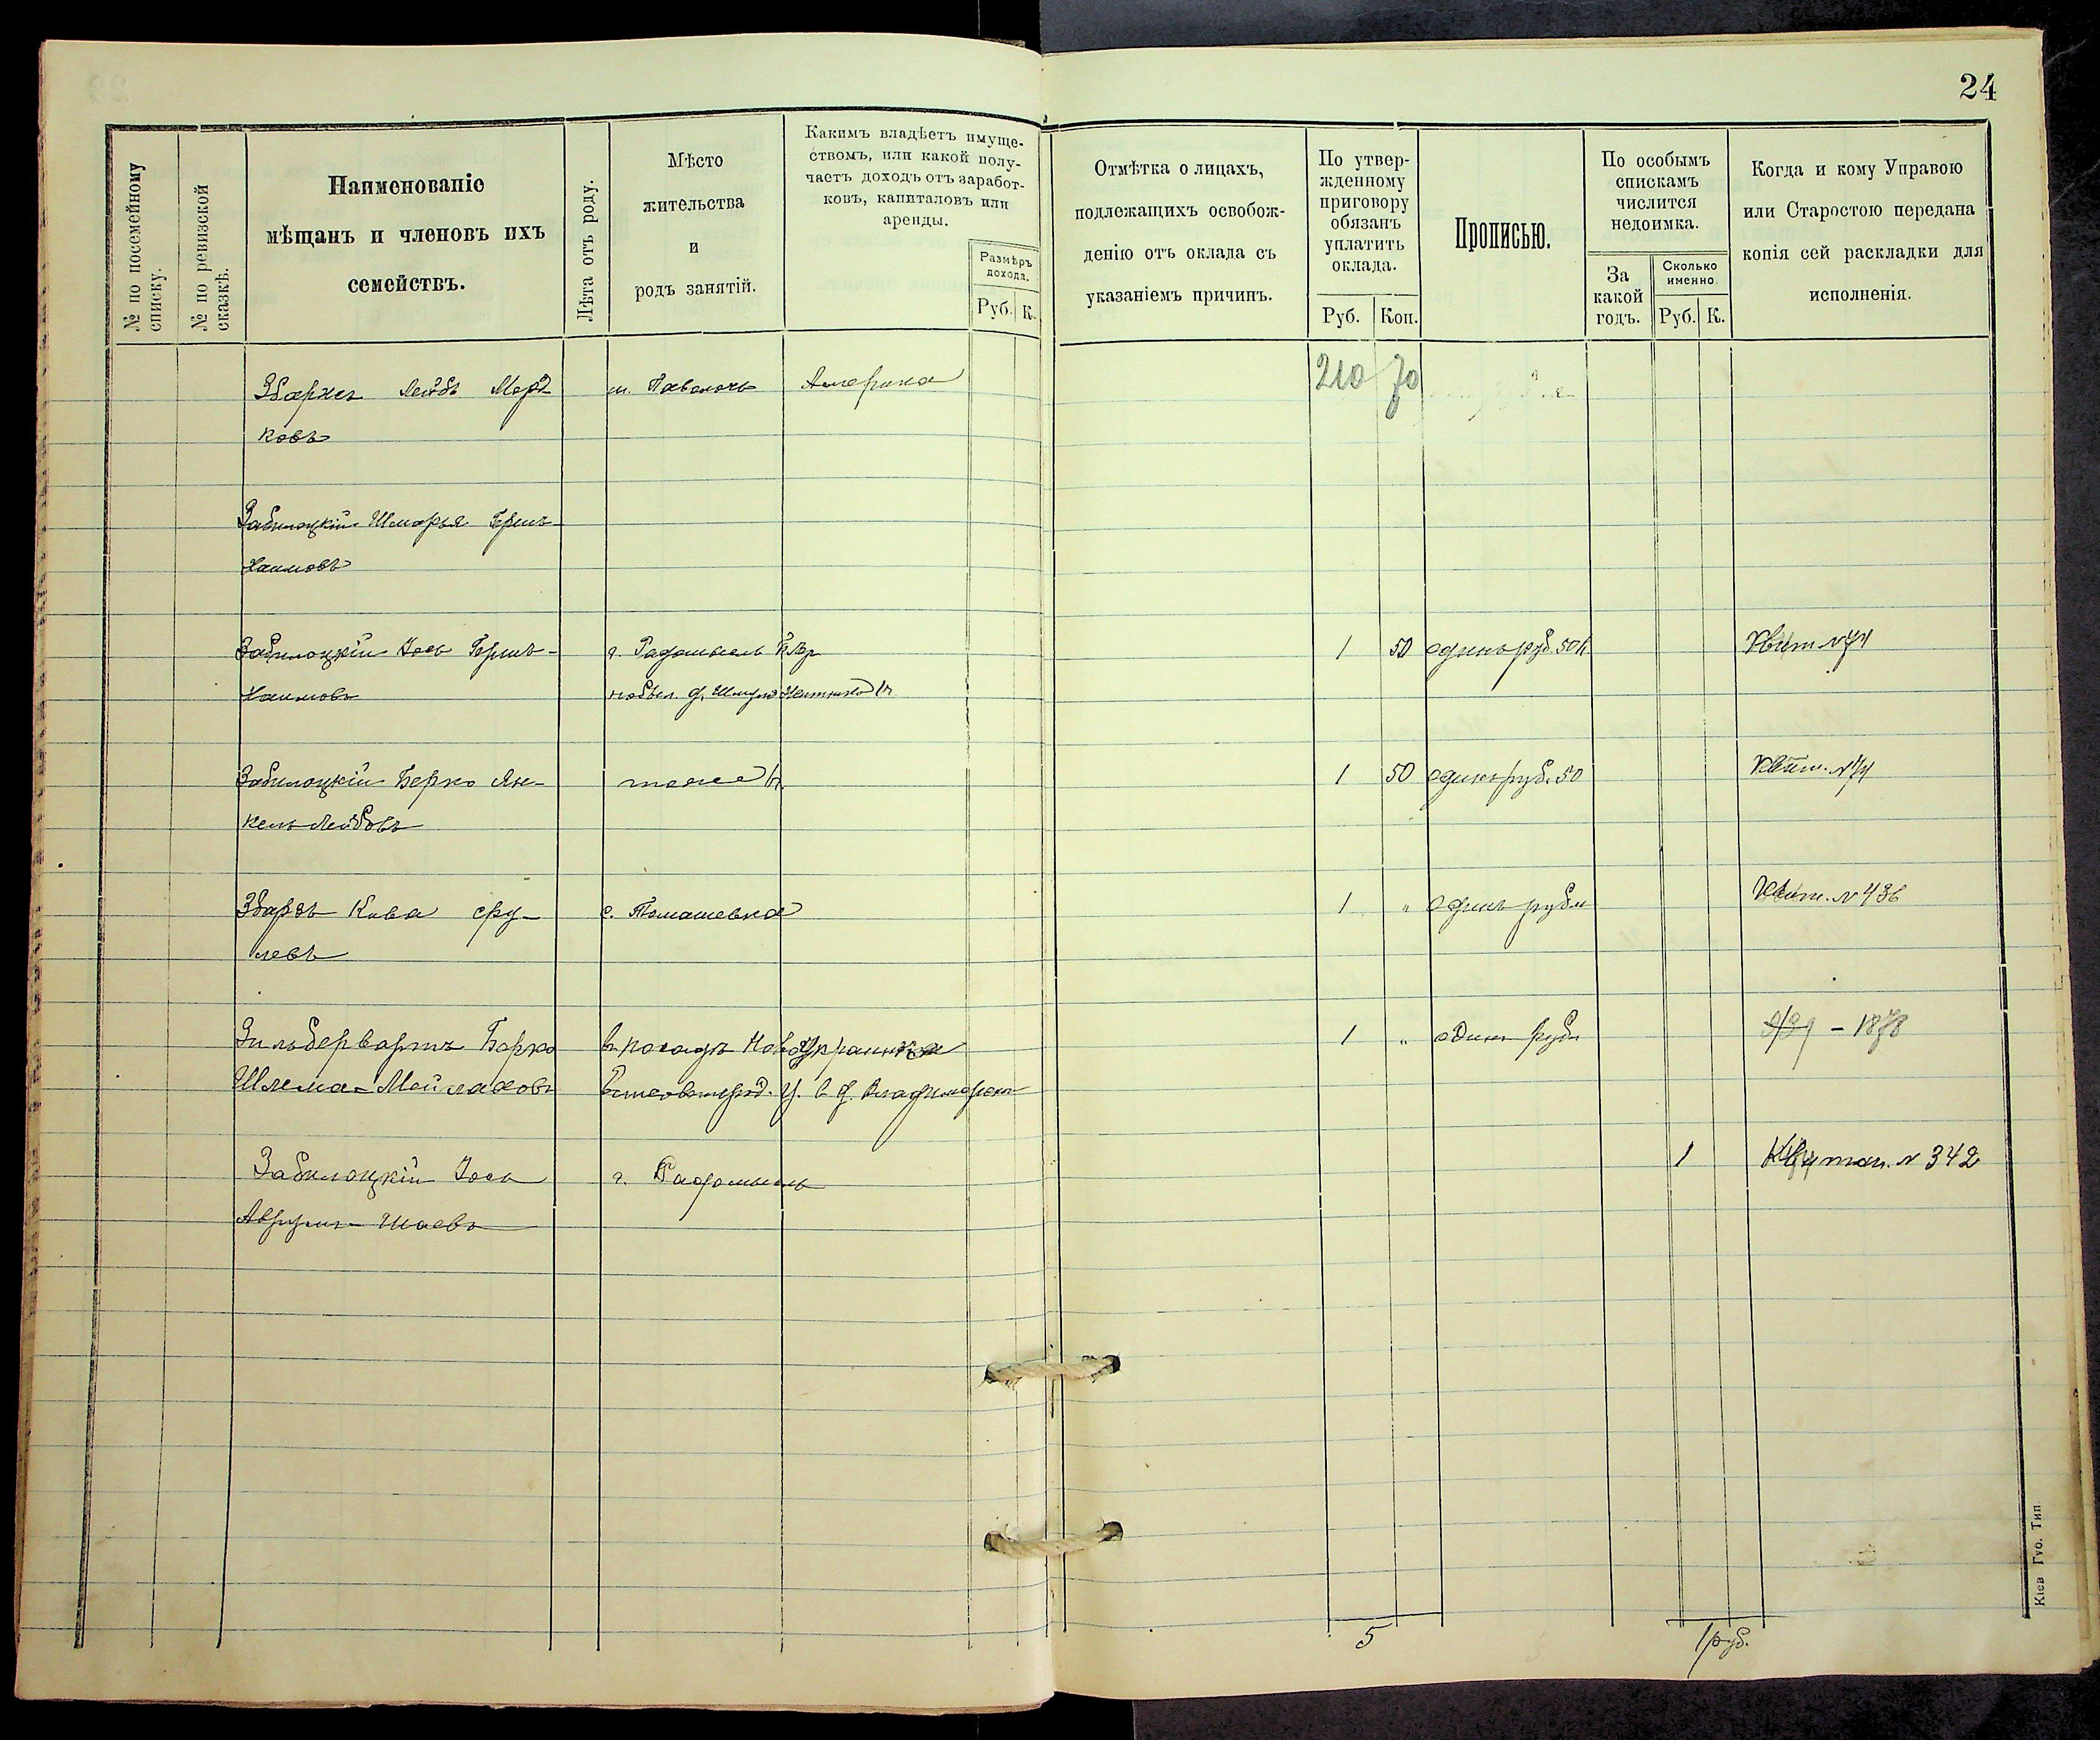 24
№ по посемейному списку.
№ по ревизской сказкѣ.
Наименованіе
мѣщанъ и членовъ ихъ
семействъ.
Лѣта отъ роду.
Мѣсто
жительства
и
родъ занятій.
Какимъ владѣетъ имуще-
ствомъ, или какой полу-
чаетъ доходъ отъ заработ-
ковъ, капиталовъ или
аренды.
Размѣръ
дохода.
Руб. К.
Отмѣтка о лицахъ,
подлежащихъ освобож-
денію отъ оклада съ
указаніемъ причинъ.
По утвер-
жденному
приговору
обязанъ
уплатить
оклада.
Руб. Коп.
Прописью.
По особымъ
спискамъ
числится
недоимка.
За
какой
годъ.
Сколько
именно.
Руб. К.
Когда и кому Управою
или Старостою передана
копія сей раскладки для
исполненія.
Збаржъ Лейбъ Морд м. Паволочь Америка 210 70
ковъ
Забилоцкій Шмарья Гершъ-
Хаимовъ
Забилоцкій Іось Гершъ- г. Радомысль 1 50 одинъ руб. 50 к Квит № 74
Хаимовъ
Забилоцкій Берко Ян- тоже 1 50 одинъ руб. 50 Квит. № 74
кель-Лейбовъ
Збаржъ Кива Сру- с. Томашевка 1 " одинъ рубл Квит. № 436
левъ
Зильберварнъ Берко в посадъ Новоукраинка 1 " один рубл 939 - 1878
Шлема-Мойлаховъ
Забилоцкій Іось г. Радомысль 1 Квитан. № 342
Аврумъ-Шаевъ
5 1 руб.
Кіев Гуо. Тип.